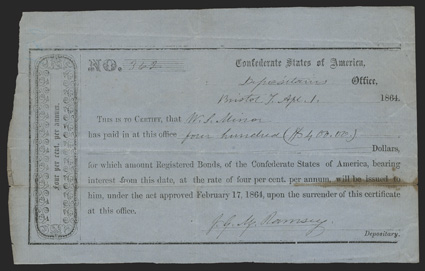 NO. 362
Confederate States of America,
Depositary Office,
Bristol T. Apl. 1. 1864.
THIS IS TO CERTIFY, that W. L. Minor
has paid in at this office four hundred ($400.00)
Dollars,
for which amount Registered Bonds, of the Confederate States of America, bearing
interest from this date, at the rate of four per cent. per annum, will be issued to
him, under the act approved February 17, 1864, upon the surrender of this certificate
at this office.
J. G. M. Ramsey
Depositary.
Four per cent. per annum.